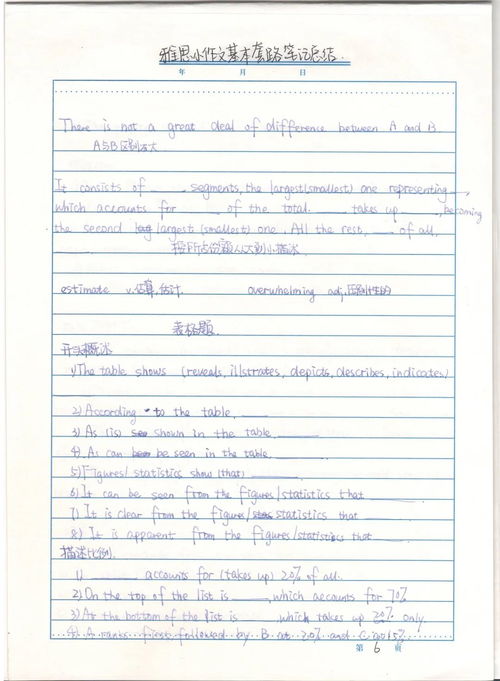 雅思小作文基本套路笔记总结.
年 月 日
There is not a great deal of difference between A and B.
A与B区别不大
It consists of ____ segments, the largest(smallest) one representing __,
which accounts for ____ of the total. ____ takes up ____, becoming
the second largest (smallest) one. All the rest, __ of all,
____. 按所占份额从大到小描述
estimate v.估算,估计. overwhelming adj.压倒性的
表格题.
开头概述
1) The table shows (reveals, illstrates, depicts, describes, indicates)
2) According to the table, ____
3) As (is) shown in the table ____
4) As can be seen in the table ____
5) Figures/statistics show (that) ____
6) It can be seen from the figures/statistics that ____
7) It is clear from the figures/statistics that
8) It is apparent from the figures/statistics that ____
描述比例.
1) ____ accounts for (takes up) 20% of all.
2) On the top of the list is ____, which accounts for 70%
3) At the bottom of the list is ____, which takes up 20% only.
4) A ranks first, followed by B at 20% and C at 15%
第 6 页